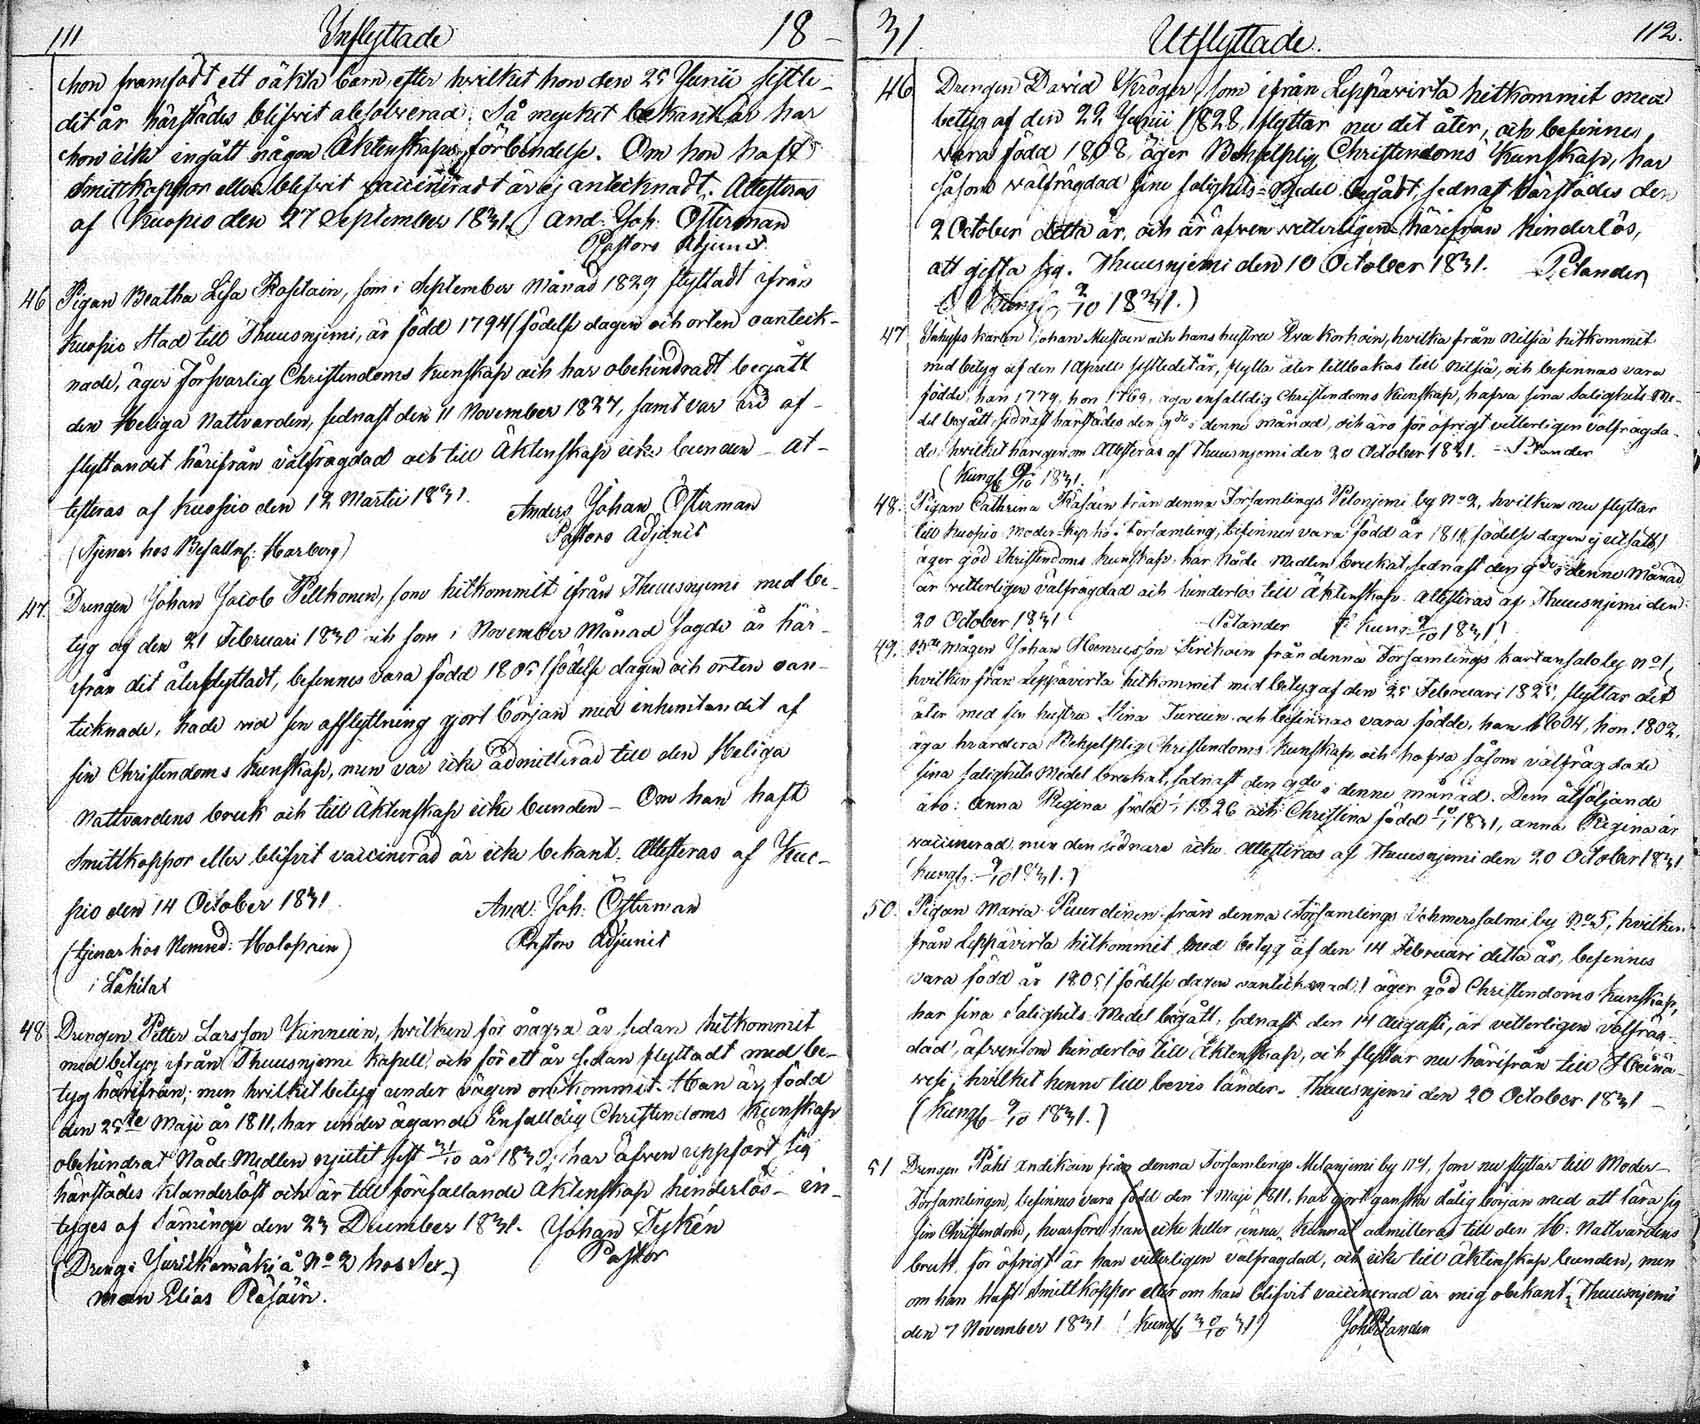 111 Inflyttade 18
hon framfödt ett oäkta barn, efter hvilket hon den 25 Junii sistle-
dit år härstädes blifvit absolverad. Så mycket bekant är har
hon icke ingått någon Äktenskaps förbindelse. Om hon haft
Smittkoppor eller blifvit vaccineradt är ej antecknadt. Attesteras
af Kuopio den 27 September 1831. And: Joh: Österman
Pastors Adjunct.
46 Pigan Beatha Lisa , som i September Månad 1829 flyttadt ifrån
Kuopio Stad till Thuusnjemi, är född 1794 (födelse dagen och orten oanteck-
nade, äger Försvarlig Christendoms Kunskap och har obehindradt begått
den Heliga Nattvarden, sednast den 11 November 1827, samt var vid af-
flyttandet härifrån välfrägdad och till Äktenskap icke bunden – At-
testeras af Kuopio den 12 Martii 1831.
Anders Johan Österman
Pastors Adjunct
(Tjenar hos Befalln: Harberg)
47. Drengen Johan Jacob Pelkonen, som hitkommit ifrån Thuusnjemi med be-
tyg af den 21 Februari 1830 och som i November Månad sagde år här-
ifrån dit återflyttadt, befinnes vara född 1805 (födelse dagen och orten oan-
tecknade, hade vid sin afflyttning gjort början med inhemtandet af
sin Christendoms Kunskap, men var icke admitterad till den Heliga
Nattvardens bruk och till Äktenskap icke bunden – Om han haft
Smittkoppor eller blifvit vaccinerad är icke bekant. Attesteras af Kuo-
pio den 14 October 1831.
And: Joh: Österman
Pastors Adjunct
(tjenar hos Nemnd: Holopain)
i Lähilax
48 Drengen Petter Larsson Kinnuin, hvilken för några år sedan hitkommit
med betyg ifrån Thuusnjemi Kapell, och för ett år sedan flyttadt med be-
tyg härifrån; men hvilket betyg under vägen omkommit. Han är född
den 25te Maji år 1811, har under ägande Enfalldig Christendoms Kunskap
obehindrat Nåde-Medlen njutit sist 31/10 år 1830, har äfven uppfört sig
härstädes klanderlöst och är till förefallande Äktenskap hinderlös – in-
tyges af Säminge den 23 December 1831. Johan Tyskén
Pastor
(Dreng i Juurikkamäki å No 2 hos
man Elias Räsäin.
31. Utflyttade. 112.
46 Drengen David Kröger, som ifrån Leppävirta hitkommit med
betyg af den 22 Junii 1828, flyttar nu dit åter, och befinnes
vara född 1808, äger Behjelplig Christendoms Kunskap, har
såsom välfrägdad sine salighets-Medel begått, sednast härstädes den
2 October detta år, och är äfven vetterligen härifrån hinderlös,
att gifta sig. Thuusnjemi den 10 October 1831. Pélander
( Kungj. 9/10 1831.)
47 Inhyses karlen Johan Mustoen och hans hustru Eva Korhoin, hvilka från Nilsiä hitkommit
med betyg af den 1 Aprill sistledit år, flytta åter tillbakas till Nilsiä, och befinnas vara
födde, han 1779, hon 1769, äga enfalldig Christendoms Kunskap, hafva sina Salighets Me-
del begått, sednast härstädes den 9de i denne månad, och äro för öfrigt vetterligen välfrägda-
de: hvilket härigenom Attesteras af Thuusnjemi den 20 October 1831. – Pélander
(Kungj. 9/10 1831.)
48. Pigan Cathrina Räsäin från denna Församlings Pelonjemi by No 2, hvilken nu flyttar
till Kuopio Moder-Kyrko-Församling, befinnes vara född år 1811 (födelse dagen ej utsatt)
äger god Christendoms Kunskap, har Nåde Medlen brukat, sednast den 9de i denne Månad
är vetterligen välfrägdad och hinderlös till Äktenskap. Attesteras af Thuusnjemi den
20 October 1831 Pélander ( Kung. 9/10 1831.)
49. Johan Henricsson från denna Församlings Kartansalo by No 1,
hvilken från Leppävirta hitkommit med betyg af den 25 Februari 1825, flyttar dit
åter med sin hustru Stina Turuin och befinnas vara födde, han 1804, hon 1802,
äga hvardera Behjelplig Christendoms Kunskap, och hafva såsom välfrägdade
sina salighets Medel brukat, sednast den 9de i denne månad. Dem åtföljande
äro: Anna Regina född 1826 och Christina född 1831, Anna Regina är
vaccinerad, men den sednare icke. Attesteras af Thuusnjemi den 20 October 1831
(Kungj. 9/10 1831.)
50. Pigan Maria Puurdinen från denna Församlings Vehmersalmi by No 5, hvilken
från Leppävirta hitkommit med betyg af den 14 Februari detta år, befinnes
vara född år 1805 (födelse dagen oantecknad) äger god Christendoms Kunskap,
har sina Salighets-Medel begått, sednast den 14 Augusti, är vetterligen välfräg-
dad, äfvensom hinderlös till Äktenskap, och flyttar nu härifrån till Heinä-
vesi, hvilket henne till bevis länder. Thuusnjemi den 20 October 1831 –
(Kungj. 9/10 1831.)
51 Drengen Påhl Andikain från denna Församlings Melanjemi by No 1, som nu flyttar till Moder-
Församlingen, befinnes vara född den 7 Maji 1811, har gjort ganska dålig början med att lära sig
sin Christendom, hvarföre han icke heller ännu kunnat admitteras till den H. Nattvardens
bruk. för öfrigt är han vetterligen välfrägdad, och icke till Äktenskap bunden, men
om han haft Smittkoppor eller om han blifvit vaccinerad är mig obekant. Thuusnjemi
den 7 November 1831 (Kungj. 30/10 31) Joh Pélander